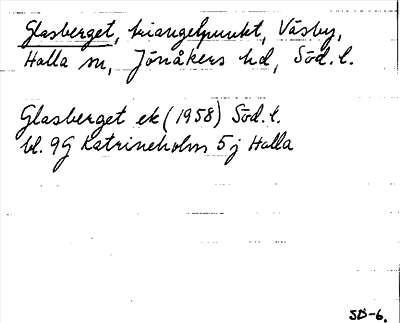 Glasberget, triangelpunkt, Väsby,
Halla sn, Jönåkers hd, Söd. l.
Glasberget ek (1958) Söd. l.
bl. 9G Katrineholm 5j Halla
SD-6.